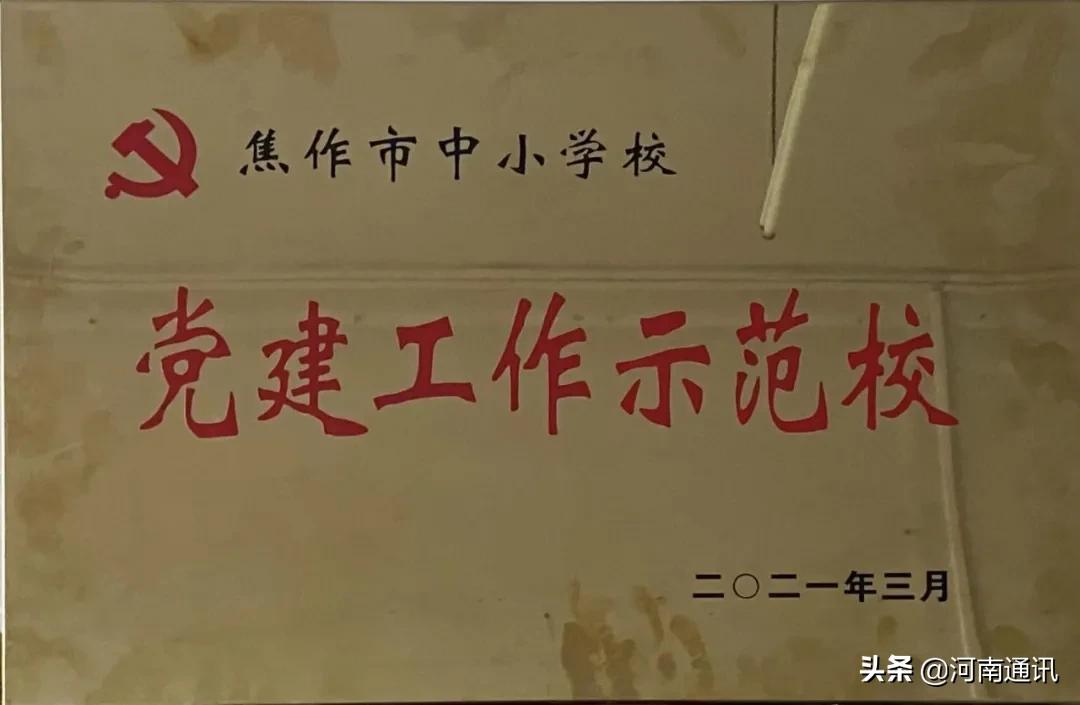 焦作市中小学校
党建工作示范校
二〇二一年三月
头条 @河南通讯